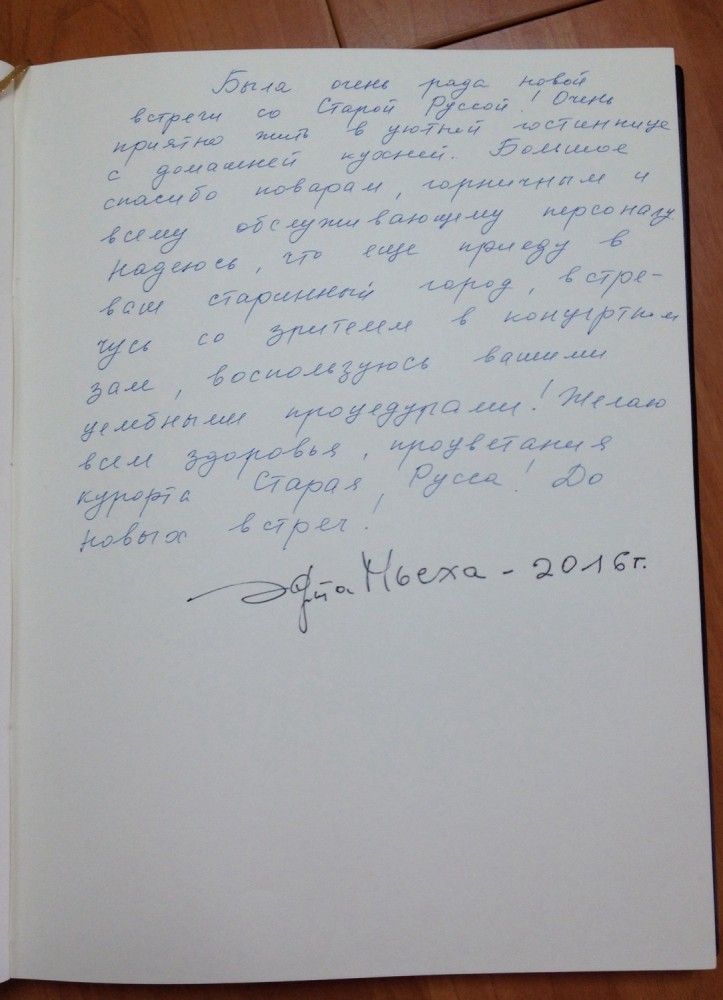 Была очень рада новой
встречи со Старой Руссой! Очень
приятно жить в уютней гостиннице
с домашней кухней. Большое
спасибо поварам, горничным и
всему обслуживающему персоналу.
Надеюсь, что еще приеду в
ваш старинный город, встре-
чусь со зрителем в концертном
зале, воспользуюсь вашими
целебными процедурами! Желаю
всем здоровья, процветания
курорта Старая Русса! До
новых встреч!
Эдита Пьеха - 2016г.